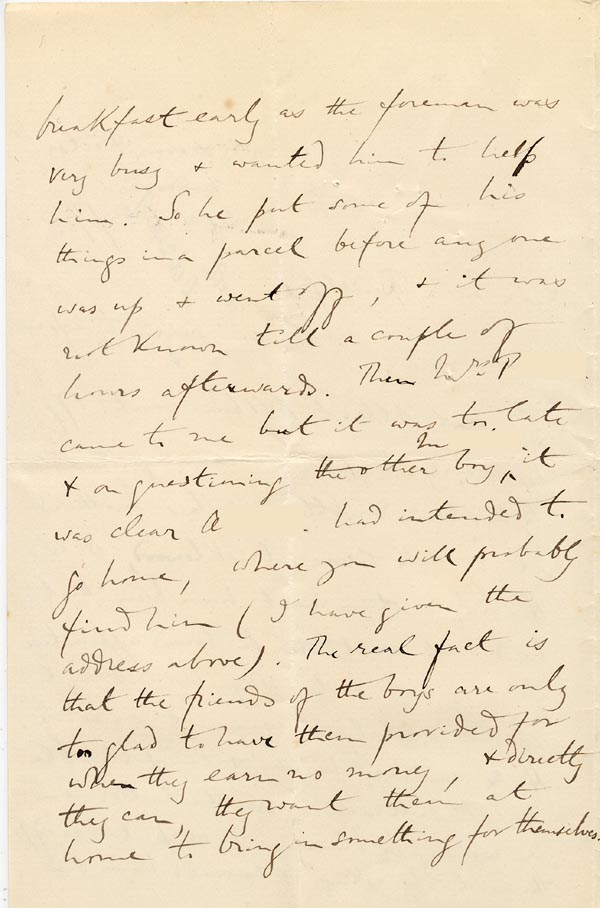 breakfast early as the foreman was
very busy & wanted him to help
him. So he put some of his
things in a parcel before any one
was up & went off, & it was
not known till a couple of
hours afterwards. Then Mrs P
came to me but it was too late
& on questioning the other boy, it
was clear A had intended to
go home, where you will probably
find him (I have given the
address above). The real fact is
that the friends of the boys are only
too glad to have them provided for
when they earn no money, & directly
they can, they want them at
home to bring in something for themselves.